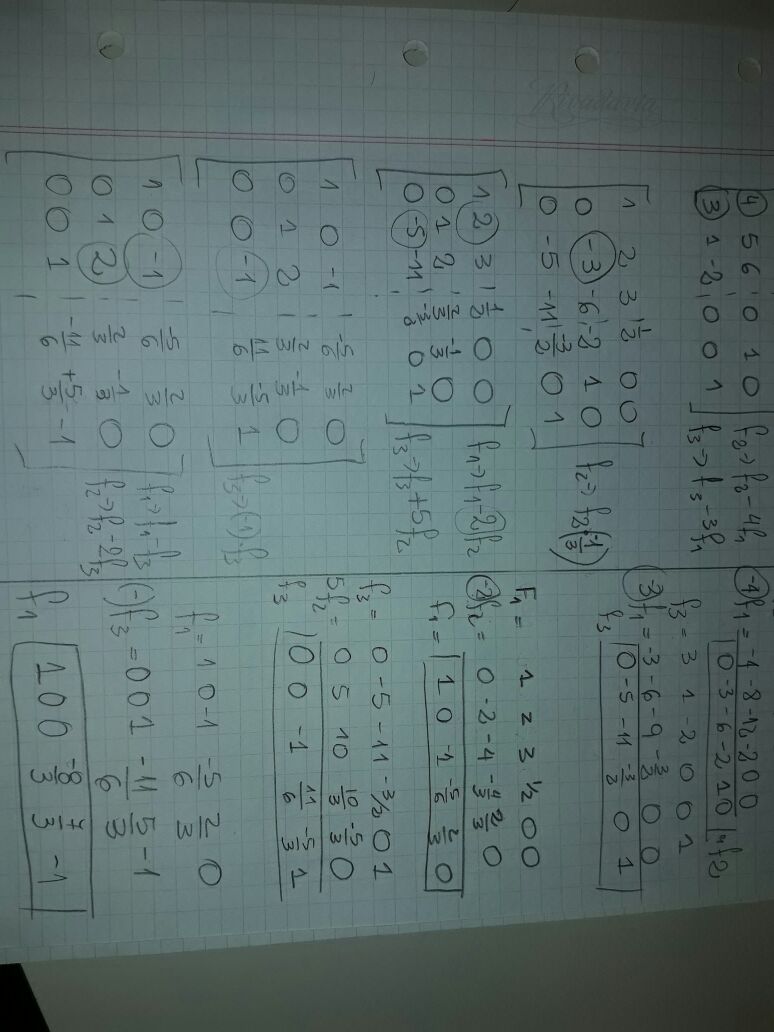 Rivadavia
4 5 6 | 0 1 0 | f2 → f2 - 4f1
3 1 -2 | 0 0 1 | f3 → f3 - 3f1
1 2 3 | 1/2 0 0
0 -3 -6 | -2 1 0 | f2 → f2·(-1/3)
0 -5 -11 | -3/2 0 1
1 2 3 | 1/2 0 0 | f1 → f1 - 2f2
0 1 2 | 2/3 -1/3 0
0 -5 -11 | -3/2 0 1 | f3 → f3 + 5f2
1 0 -1 | -5/6 2/3 0
0 1 2 | 2/3 -1/3 0
0 0 -1 | 11/6 -5/3 1 | f3 → (-1)·f3
1 0 -1 | -5/6 2/3 0 | f1 → f1 - f3
0 1 2 | 2/3 -1/3 0 | f2 → f2 - 2f3
0 0 1 | -11/6 +5/3 -1
-4f1 = -4 -8 -12 -2 0 0
0 -3 -6 -2 1 0 | f2
f3 = 3 1 -2 0 0 1
-3f1 = -3 -6 -9 -3/2 0 0
f3 | 0 -5 -11 -3/2 0 1
F1 = 1 2 3 1/2 0 0
-2f2 = 0 -2 -4 -4/3 2/3 0
f1 = | 1 0 -1 -5/6 2/3 0
f3 = 0 -5 -11 -3/2 0 1
5f2 = 0 5 10 10/3 -5/3 0
f3 | 0 0 -1 11/6 -5/3 1
f1 = 1 0 -1 -5/6 2/3 0
(-)f3 = 0 0 1 -11/6 5/3 -1
f1 | 1 0 0 -8/3 7/3 -1